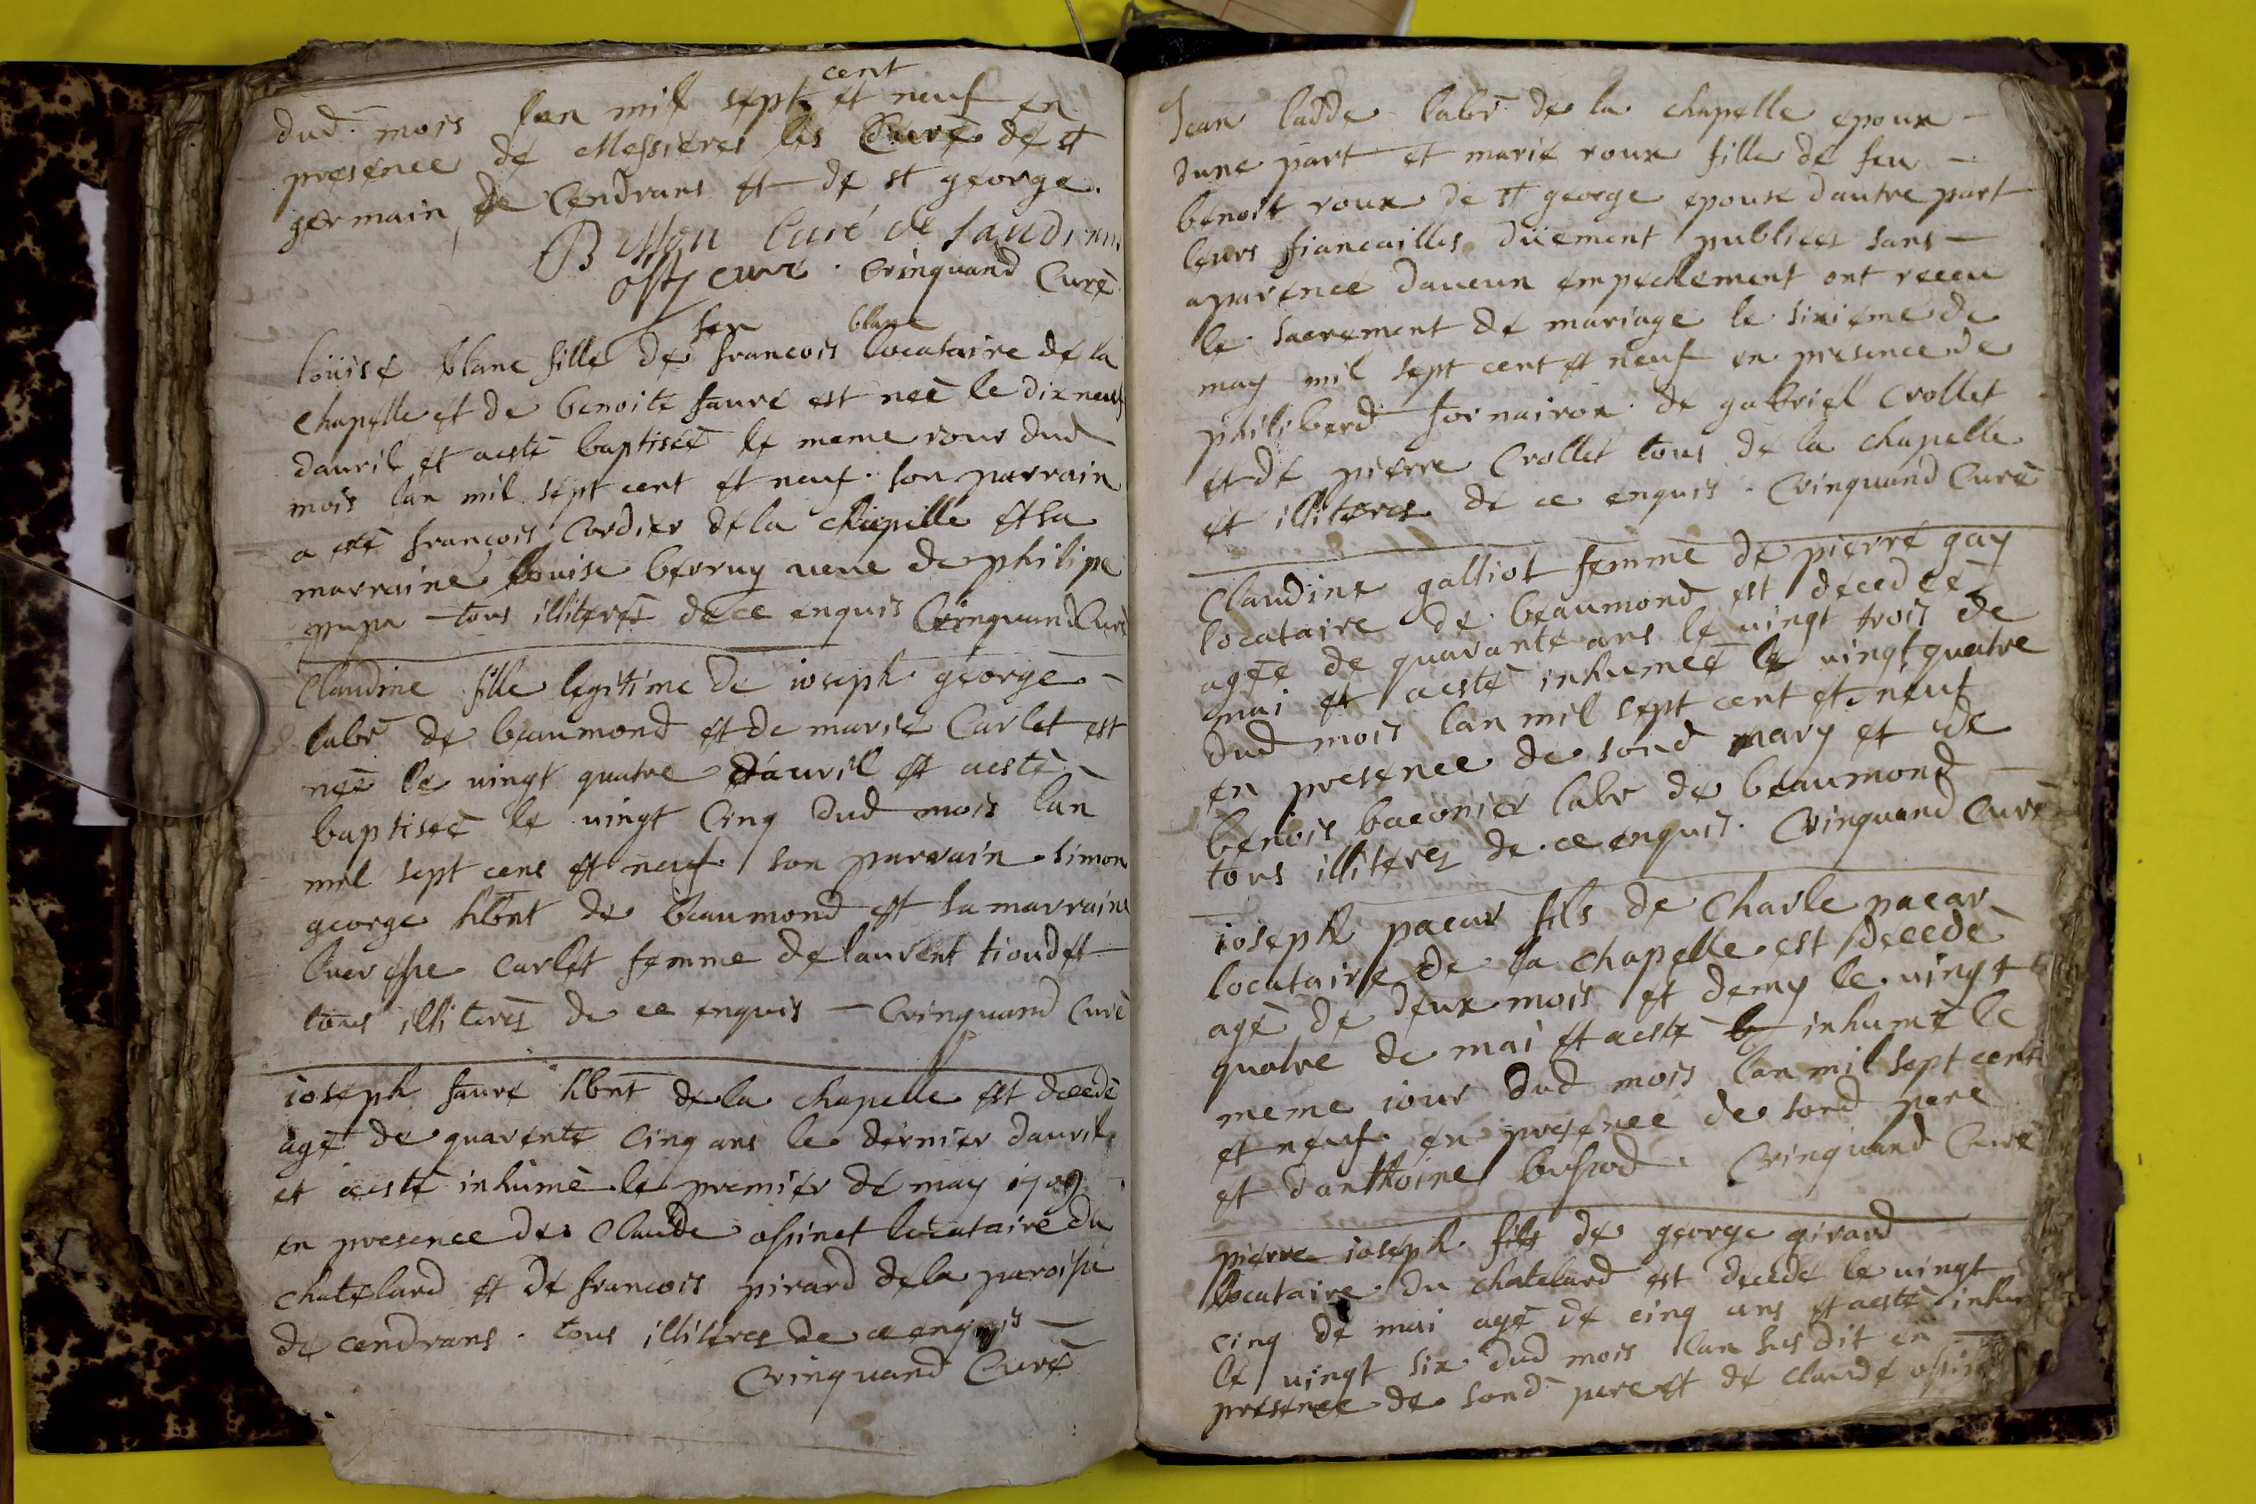 cent
dud. mois lan mil sept et neuf en
presence de Messieres les Curé de st
germain de Cendrans et de st george.
Buisson Curé de Sandrans
curé . Crinquand Curé
feu blanc
loüise blanc fille de francois locataire de la
chapelle et de benoite faure est neè le dix neuf
dauril et aesté baptiseé le meme iour dud
mois lan mil sept cent et neuf. son parrain
a eté françois Cordier de la chapelle et sa
marraine louise berruy veue de philipe
papa tous illiterés de ce enquis Crinquand Curé
Claudine fille legitime de ioseph george
labr de beaumond et de marie Carlet est
neè le uingt quatre dauril et aesté
baptiseé le uingt Cinq dud mois lan
mil sept cens et neuf. son parrain simon
george hbnt de beaumond et sa marraine
lucresse carlet femme de laurent tioudet
tous illiterés de ce enquis — Crinquand Curé
ioseph faure hbnt de la chapelle est decedé
agé de quarente Cinq ans le dernier dauril
et aesté inhumè le premier de may 1709
en presence de Claude ossinet locataire du
chatelard et de francois pirard de la paroisse
de cendrans . tous illiteres de ce enquis —
Crinquand Curé
Jean ladde labr de la chapelle epoux
dune part et marie roux fille de feu
benoit roux de st george epouse dautre part
leurs fiancailles düement publieez sans
aparence daucun empechement ont receu
le sacrement de mariage le sixieme de
may mil sept cent et neuf en presence de
philiberd fornairon de gabriel Crollet
et de pierre Crollet tous de la chapelle
et illiteres de ce enquis . Crinquand Curé
Claudine galliot femme de pierre gay
locataire de beaumond est decedeé
ageé de quarante ans le uingt trois de
mai et aesté inhumeé le uingt quatre
dud mois lan mil sept cent et neuf
en presence de sond mary et de
benois baconier labr de beaumond
tous illiterez de ce enquis. Crinquand Curé
ioseph pacar fils de Charle pacar
locataire de la chapelle est decedè
agé de deux mois et demy le uingt
quatre de mai et aesté inhumé le
meme iour dud mois lan mil sept cent
et neuf. en presence de sond pere
et danthoine bussod . Crinquand Curé
pierre ioseph fils de george girard
locataire du chatelard est decedé le uingt
cinq de mai agé de cinq ans et aesté inhu
le uingt six dud mois lan sus dit en
presence de sond pere et de claude ossin